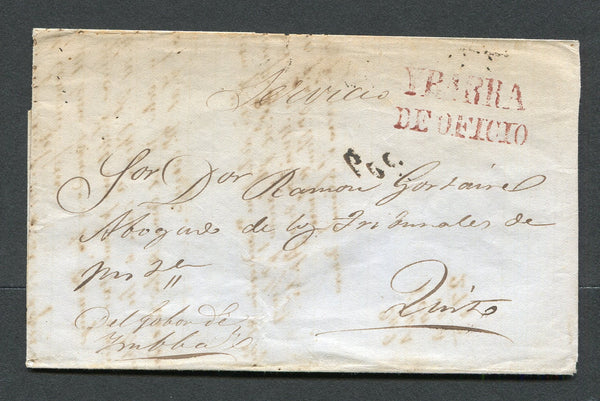 Servicio
YBARRA
DE OFICIO
Sor Dor Ramon Gortairel
Abogado de los Tribunales de
Quito
Del Gobor de